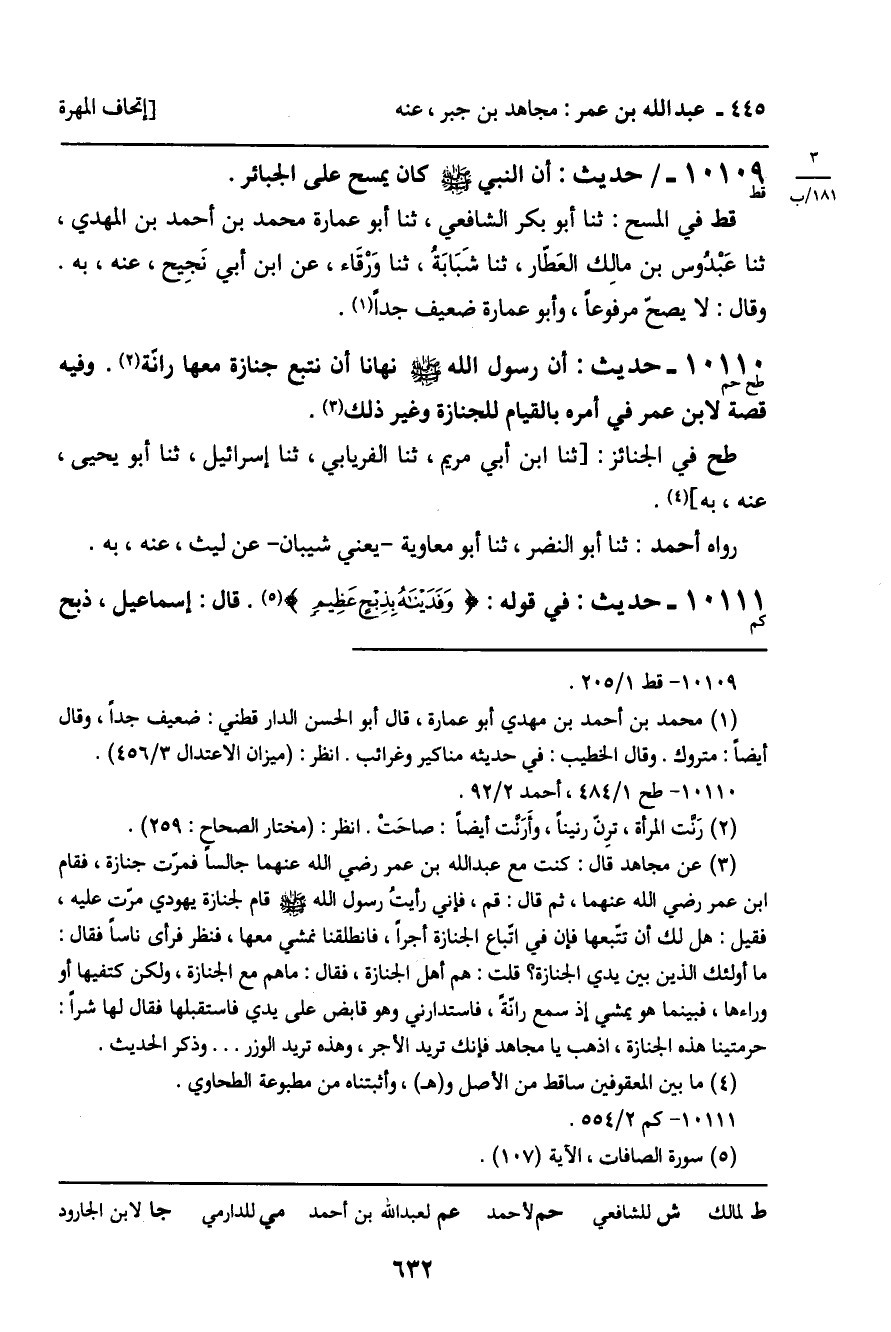 ٤٤٥ ـ عبدالله بن عمر : مجاهد بن جبر ، عنه [إتحاف المهرة
٣
١٨١/ب
١٠١٠٩ ـ/ حديث : أن النبي ﷺ كان يمسح على الجبائر .
قط
قط في المسح : ثنا أبو بكر الشافعي ، ثنا أبو عمارة محمد بن أحمد بن المهدي ،
ثنا عَبْدُوس بن مالِك العَطّار ، ثنا شَبَابَةُ ، ثنا وَرْقَاء ، عن ابن أبي نَجِيح ، عنه ، به .
وقال : لا يصحّ مرفوعاً ، وأبو عمارة ضعيف جداً(١) .
١٠١١٠ ـ حديث : أن رسول الله ﷺ نهانا أن نتبع جنازة معها رانّة(٢) . وفيه
طح حم
قصة لابن عمر في أمره بالقيام للجنازة وغير ذلك(٣) .
طح في الجنائز : [ثنا ابن أبي مريم ، ثنا الفريابي ، ثنا إسرائيل ، ثنا أبو يحيى ،
عنه ، به](٤) .
رواه أحمد : ثنا أبو النضر ، ثنا أبو معاوية -يعني شيبان- عن ليث ، عنه ، به .
١٠١١١ ـ حديث : في قوله : ﴿ وَفَدَيْنَاهُ بِذِبْحٍ عَظِيمٍ ﴾(٥) . قال : إسماعيل ، ذبح
كم
١٠١٠٩- قط ٢٠٥/١ .
(١) محمد بن أحمد بن مهدي أبو عمارة ، قال أبو الحسن الدار قطني : ضعيف جداً ، وقال
أيضاً : متروك . وقال الخطيب : في حديثه مناكير وغرائب . انظر : (ميزان الاعتدال ٤٥٦/٣) .
١٠١١٠- طح ٤٨٤/١ ، أحمد ٩٢/٢ .
(٢) رَنَّت المرأة ، ترِنّ رنيناً ، وأَرَنَّت أيضاً : صاحَتْ . انظر : (مختار الصحاح : ٢٥٩) .
(٣) عن مجاهد قال : كنت مع عبدالله بن عمر رضي الله عنهما جالساً فمرّت جنازة ، فقام
ابن عمر رضي الله عنهما ، ثم قال : قم ، فإني رأيتُ رسول الله ﷺ قام لجنازة يهودي مرّت عليه ،
فقيل : هل لك أن تتّبعها فإن في اتّباع الجنازة أجراً ، فانطلقنا نمشي معها ، فنظر فرأى ناساً فقال :
ما أولئك الذين بين يدي الجنازة؟ قلت : هم أهل الجنازة ، فقال : ماهم مع الجنازة ، ولكن كتفيها أو
وراءها ، فبينما هو يمشي إذ سمع رانّةً ، فاستدارني وهو قابض على يدي فاستقبلها فقال لها شراً :
حرمتينا هذه الجنازة ، اذهب يا مجاهد فإنك تريد الأجر ، وهذه تريد الوزر ... وذكر الحديث .
(٤) ما بين المعقوفين ساقط من الأصل و(هـ) ، وأثبتناه من مطبوعة الطحاوي .
١٠١١١- كم ٥٥٤/٢ .
(٥) سورة الصافات ، الآية (١٠٧) .
ط لمالك ش للشافعي حم لأحمد عم لعبدالله بن أحمد مي للدارمي جا لابن الجارود
٦٣٢